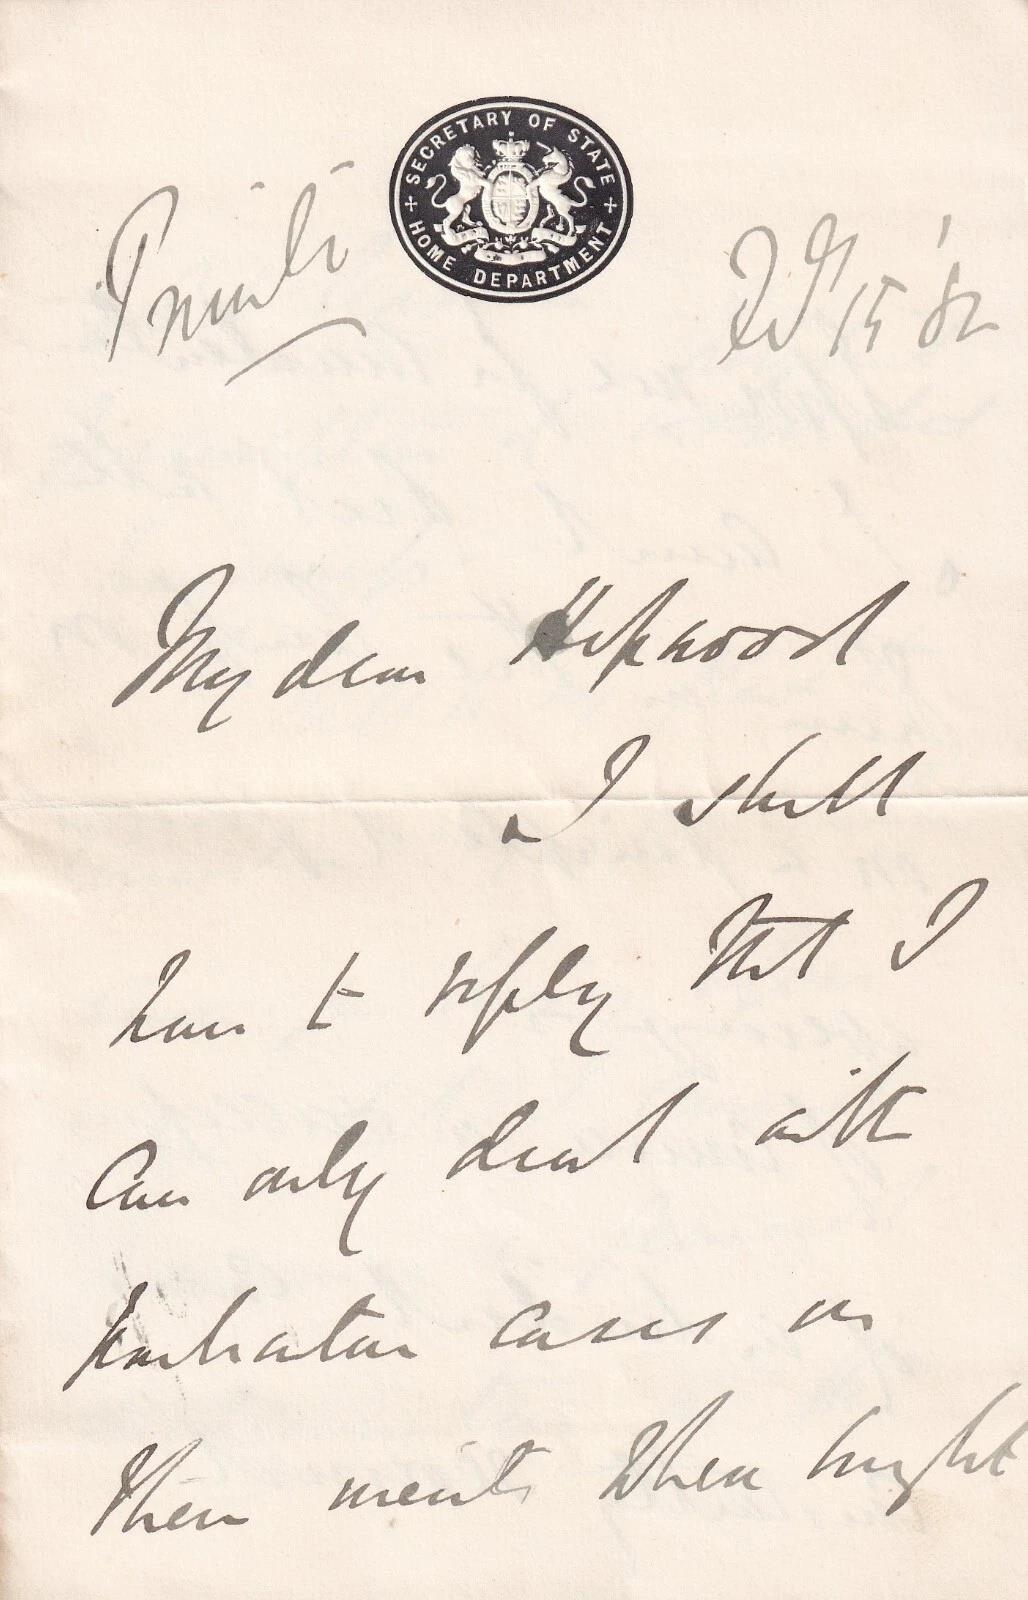 SECRETARY OF STATE
HOME DEPARTMENT
Private
15 '82
My dear Hopwood
I shall
have to reply that I
can only deal with
particular cases on
their merits when brought